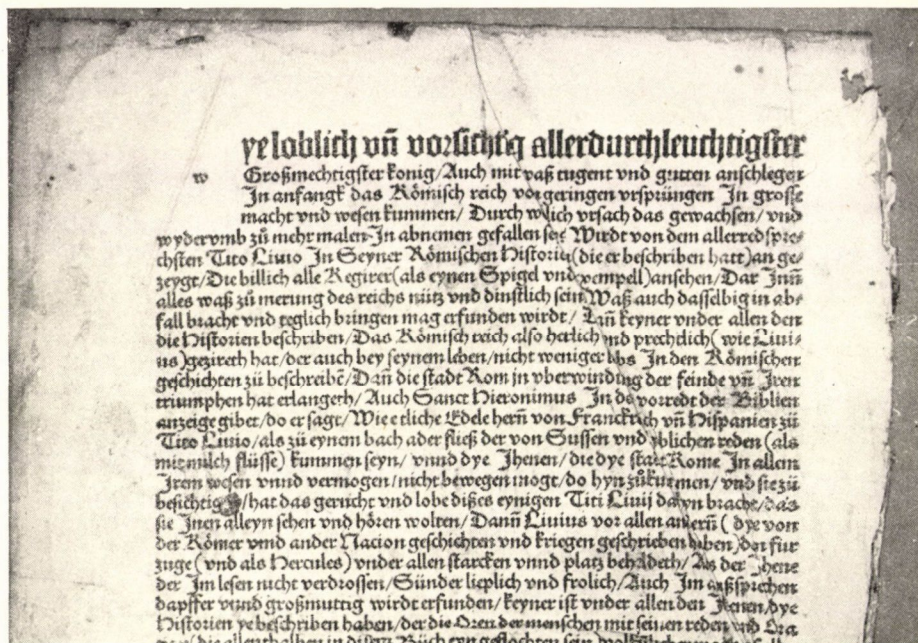 ye loblich vñ vorsichtig allerdurchleuchtigster
w Großmechtigster konig/Auch mit vaß tugent vnd gutten anschlegen
In anfangk das Römisch reich vor geringen vrsprüngen In grosse
macht vnd wesen kummen/ Durch wlich vrsach das gewachsen/ vnd
wydervmb zů mehr malen In abnemen gefallen sey Wirdt von dem allerredspre-
chsten Tito Liuio In Seyner Römischen Historien (die er beschriben hatt)an ge-
zeygt/Die billich alle Regirer(als eynen Spigel vnd exempell)ansehen/Dar Inn
alles waß zů merung des reichs nütz vnd dinstlich sein Waß auch dasselbig in abs
fall bracht vnd teglich bringen mag erfunden wirdt/ Dañ keyner vnder allen den
die Historien beschriben/Das Römisch reich also herlich vnd prechtlich( wie Liui-
us)gezireth hat/der auch bey seynem leben/nicht weniger lobs In den Römischen
geschichten zů beschreibẽ/Dañ die stadt Rom jn vberwinding der feinde vñ Iren
triumphen hat erlangeth/ Auch Sanct Hieronimus In da vorredt der Biblien
anzeige gibet/do er sagt/Wie etliche Edele herñ von Franckrich vñ Hispanien zů
Tito Liuio/als zů eynem bach ader fließ der von Sussen vnd lyblichen reden (als
mit milch flüsse) kummen seyn/ vnnd dye Jhenen/ die dye statt Rome In allem
Irem wesen vnnd vermogen/nicht bewegen mogt/do hyn zů kummen/ vnd sie zů
besichtig /hat das gerucht vnd lobe dißes eynigen Titi Liuij dahyn bracht/das
sie Inen alleyn sehen vnd hören wolten/ Danñ Liuius vor allen anderñ ( dye von
der Römer vnnd ander Nacion geschichten vnd kriegen geschrieben haben)den für
zuge ( vnd als Hercules) vnder allen starcken vnnd platz behadeth/ Als der Jhene
der Im lesen nicht verdrossen/Sünder lieplich vnd frolich/Auch Im außsprechen
dapffer vnnd großmuttig wirdt erfunden/keyner ist vnder allen den Jhenen/dye
Historien ye beschriben haben/der die Oren der menschen mit seinen reden vnd Ora-